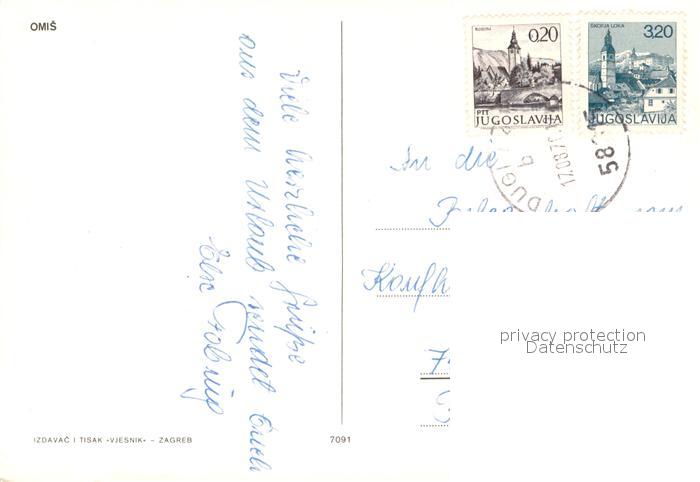 OMIŠ
Viele herzliche Grüße
aus dem Urlaub sendet Euch
BOHINJ
0,20
PTT
JUGOSLAVIJA
ŠKOFJA LOKA
3,20
JUGOSLAVIJA
DUGI
17.08.7
58
An die
Kaufh
7
privacy protection
Datenschutz
IZDAVAČ I TISAK »VJESNIK« – ZAGREB
7091